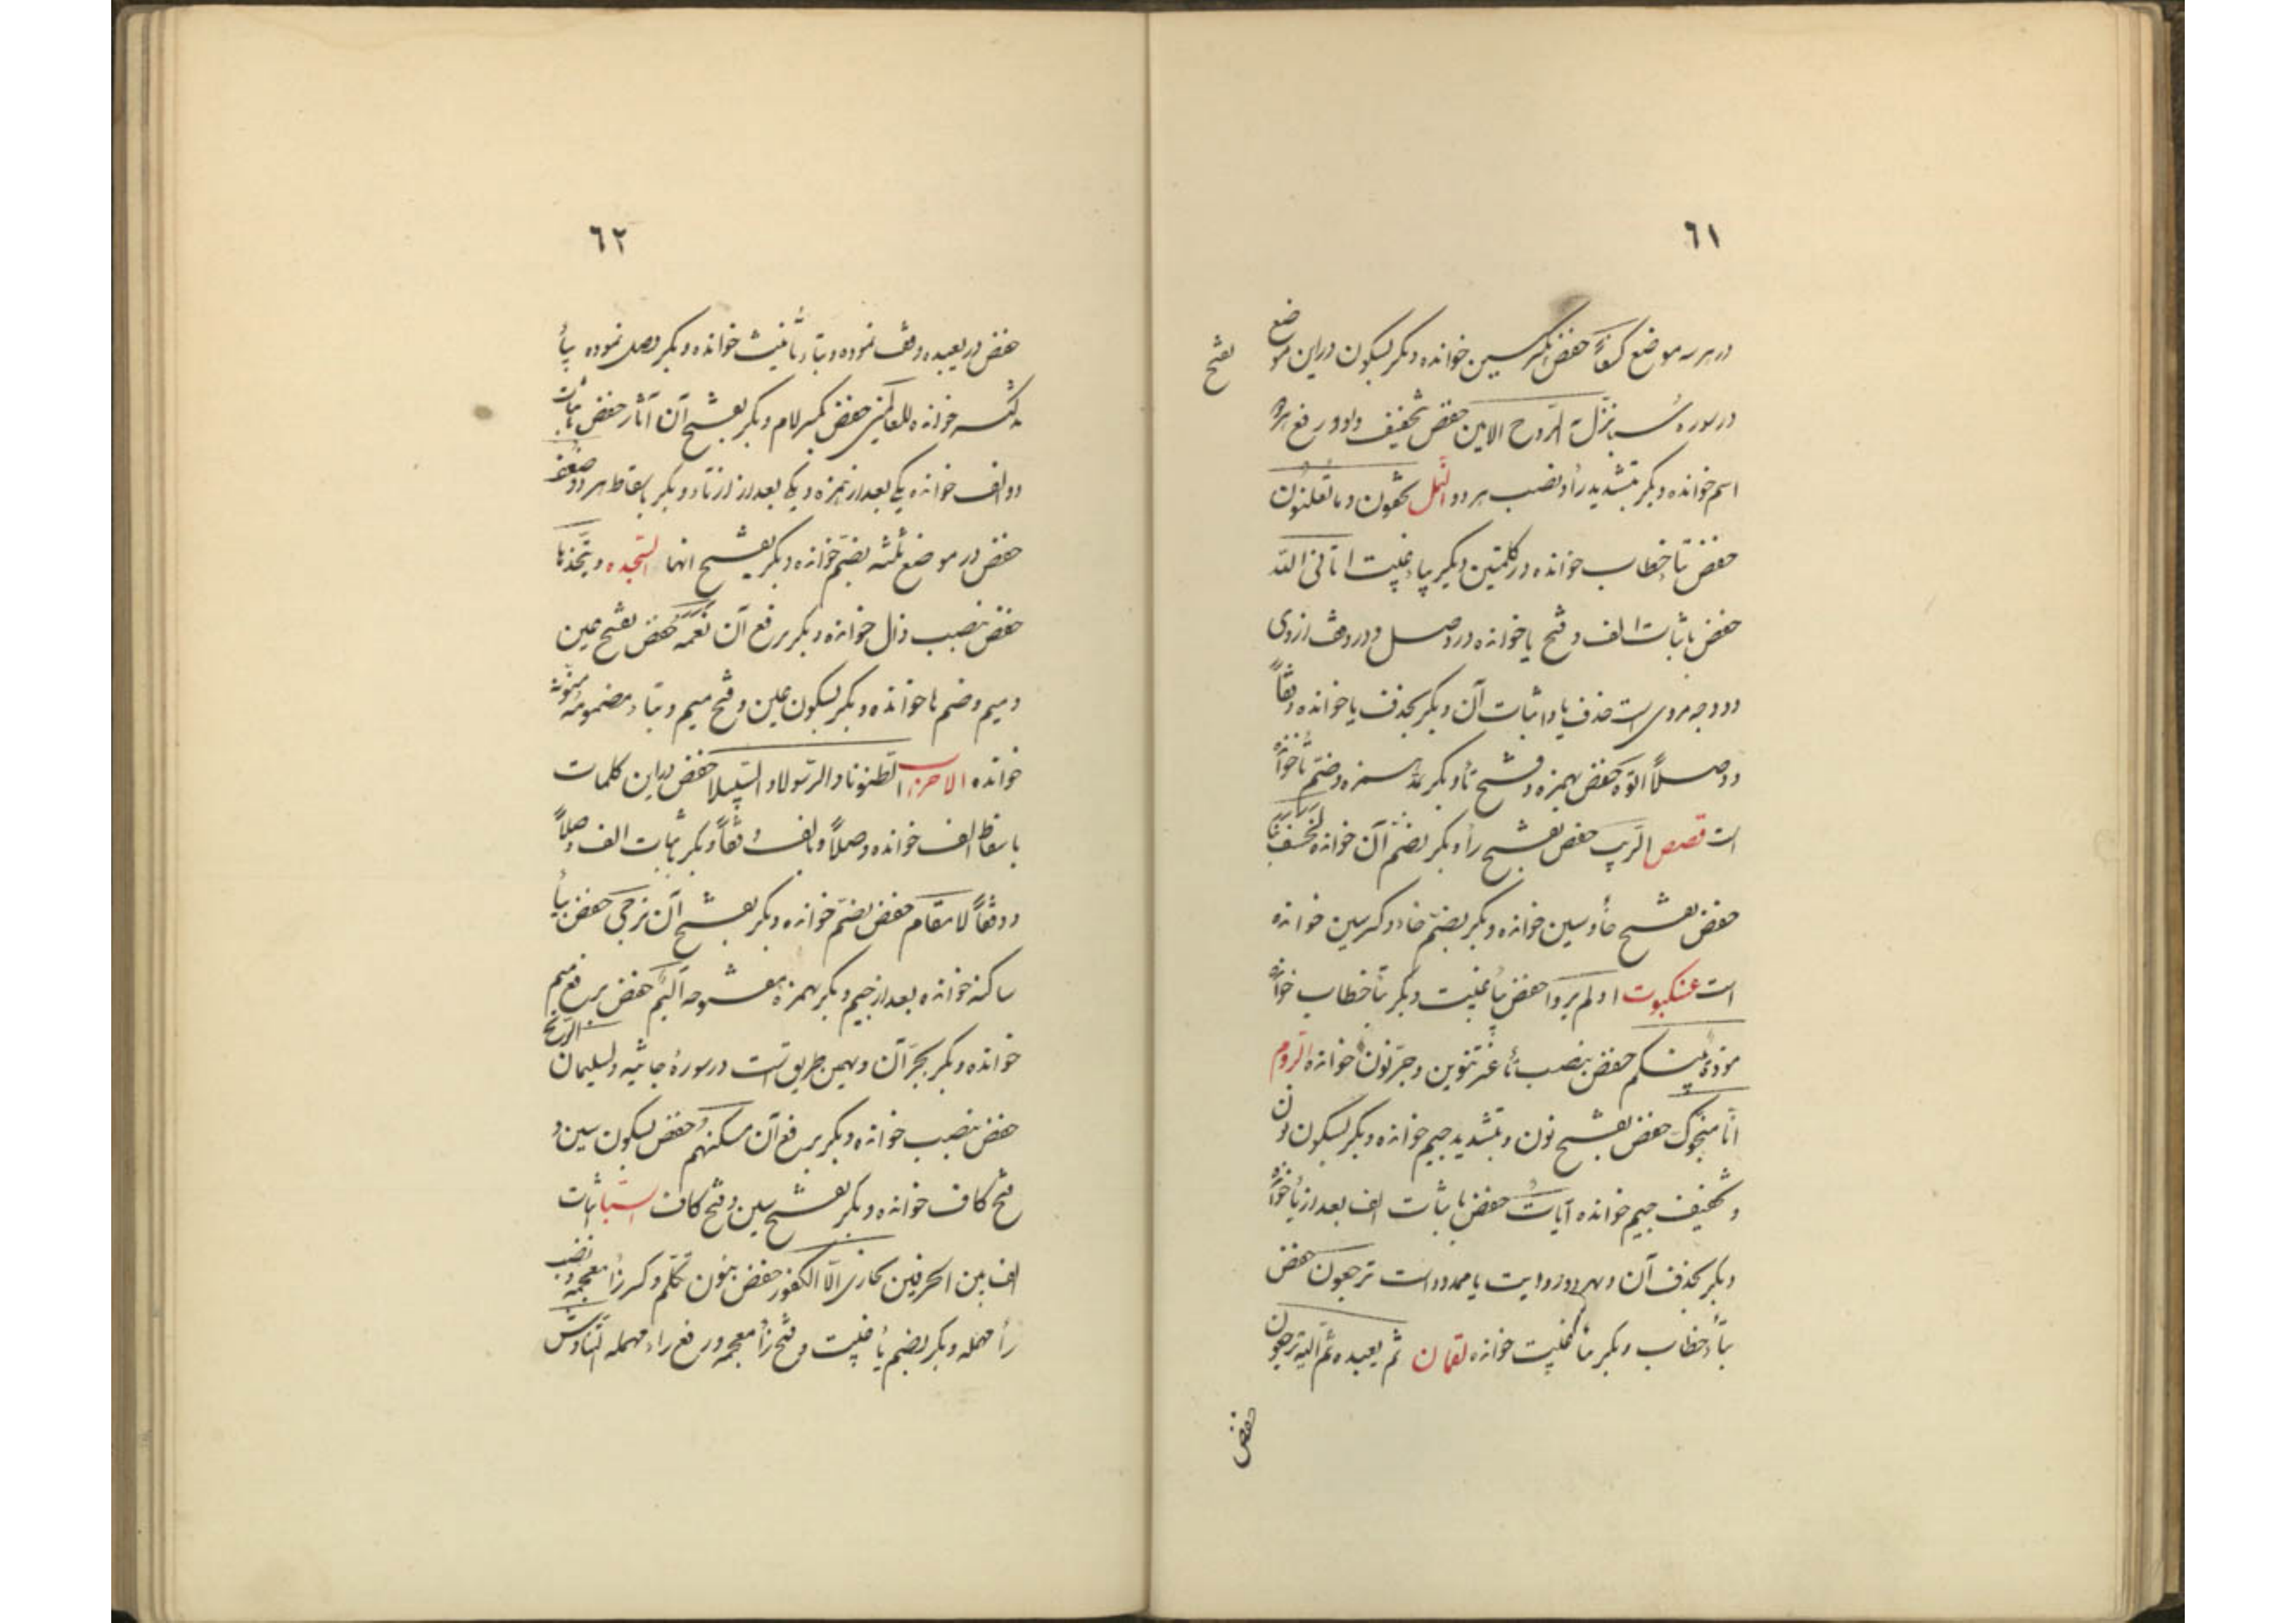 ٦١
در هر سه موضع كسفاً حفص بكسر سين خوانده و بكر بسكون در اين موضع بفتح
در سوره سبا نزّل به الرّوح الامين حفص بتخفيف و او و رفع هر دو
اسم خوانده و بكر بتشديد زأ و نصب هر دو النّمل تخفون و ما تعلنون
حفص بتأ خطاب خوانده در كلمتين و بكر بياء غيبت اتانى اللّه
حفص باثبات الف و فتح يا خوانده در وصل و در وقف از وى
دو وجه مروى است حذف يا و اثبات آن و بكر بحذف يا خوانده وقفاً
و وصلاً اتوه حفص بهمزه و فتح تأ و بكر بمدّ همزه و ضمّ تأ خوانده
است قصص الرّهب حفص بفتح رأ و بكر بضمّ آن خوانده لخسف بنا
حفص بفتح خأ و سين خوانده و بكر بضمّ خاء و كسر سين خوانده
است عنكبوت اولم يروا حفص بيأ غيبت و بكر بتأ خطاب خوانده
مودّة بينكم حفص بنصب تأ غير تنوين و جرّ نون خوانده الرّوم
انّا منجّوك حفص بفتح نون و بتشديد جيم خوانده و بكر بسكون نون
و تخفيف جيم خوانده آيات حفص باثبات الف بعد از يأ خوانده
و بكر بحذف آن و بهر دو روايت يا ممدود است ترجعون حفص
بتأ خطاب و بكر بيأ غيبت خوانده لقمان ثم يعيده ثمّ اليه ترجعون
حفص
٦٢
حفص در يعيده وقف نموده و بتاء تأنيث خوانده و بكر وصل نموده بيأ
تذكير خوانده للعالمين حفص بكسر لام و بكر بفتح آن آثار حفص باثبات
دو الف خوانده يكى بعد از همزه و يكى بعد از ثاء و بكر باسقاط هر دو ضعف
حفص در موضع ثلثه بضمّ خوانده و بكر بفتح انها السّجده و يتّخذها
حفص بنصب ذال خوانده و بكر برفع آن نعمه حفص بفتح عين
و ميم و ضم ها خوانده و بكر بسكون عين و فتح ميم و بتاء مضمومه منوّنه
خوانده الاحزاب الظّنونا و الرّسولا و السّبيلا حفص در اين كلمات
باسقاط الف خوانده وصلاً و بالف وقفاً و بكر باثبات الف وصلاً
و وقفاً لا مقام حفص بضمّ خوانده و بكر بفتح آن ترجى حفص بيأ
ساكنه خوانده بعد از جيم و بكر بهمزه مفتوحه اليم حفص برفع ميم
خوانده و بكر بجرّ آن و بهمين طريق است در سورهٔ جاثيه و لسليمان الرّيح
حفص بنصب خوانده و بكر برفع آن مسكنهم حفص بسكون سين و
فتح كاف خوانده و بكر بفتح سين و فتح كاف السّبا باثبات
الف بين الحرفين نجازى الّا الكفور حفص بنون تكلّم و كسر زأ معجمه و نصب
رأ مهمله و بكر بضم يأ غيبت و فتح زأ معجمه و رفع راء مهمله التّناوش